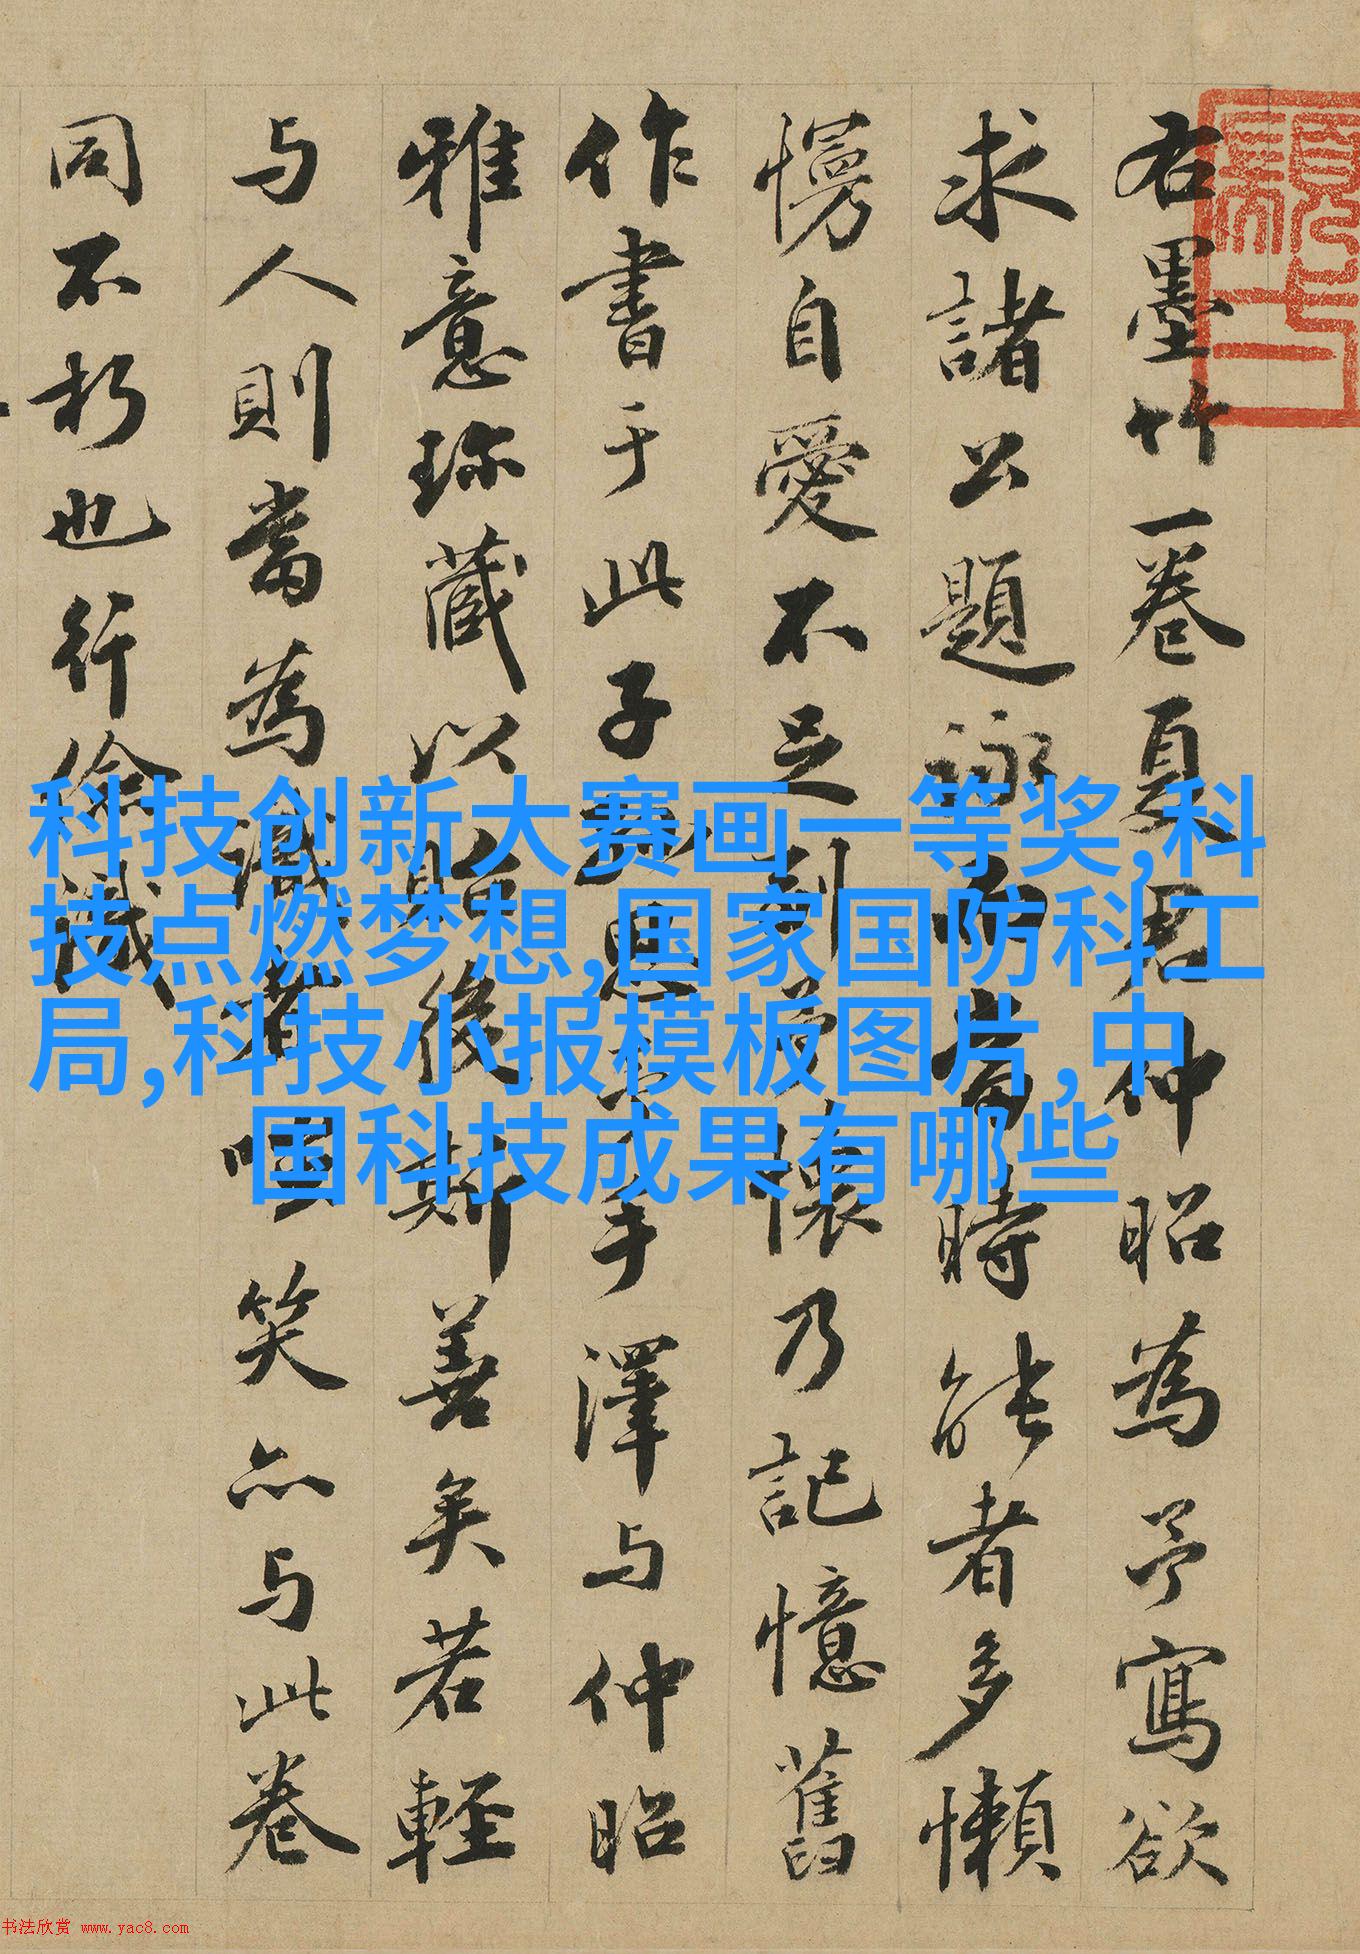 右墨竹一卷夏君仲昭為予寫欲
求諸公題詠而當時能者多懶
慢自愛不足到予懷乃記憶舊
作書于此子孫思手澤与仲昭
雅意珎藏以貽後斯善矣若輕
与人則當為識者嗤笑亦与此卷
同不朽也行儉識
科技创新大赛画一等奖,科
技点燃梦想,国家国防科工
局,科技小报模板图片,中
国科技成果有哪些
书法欣赏 www.yac8.com